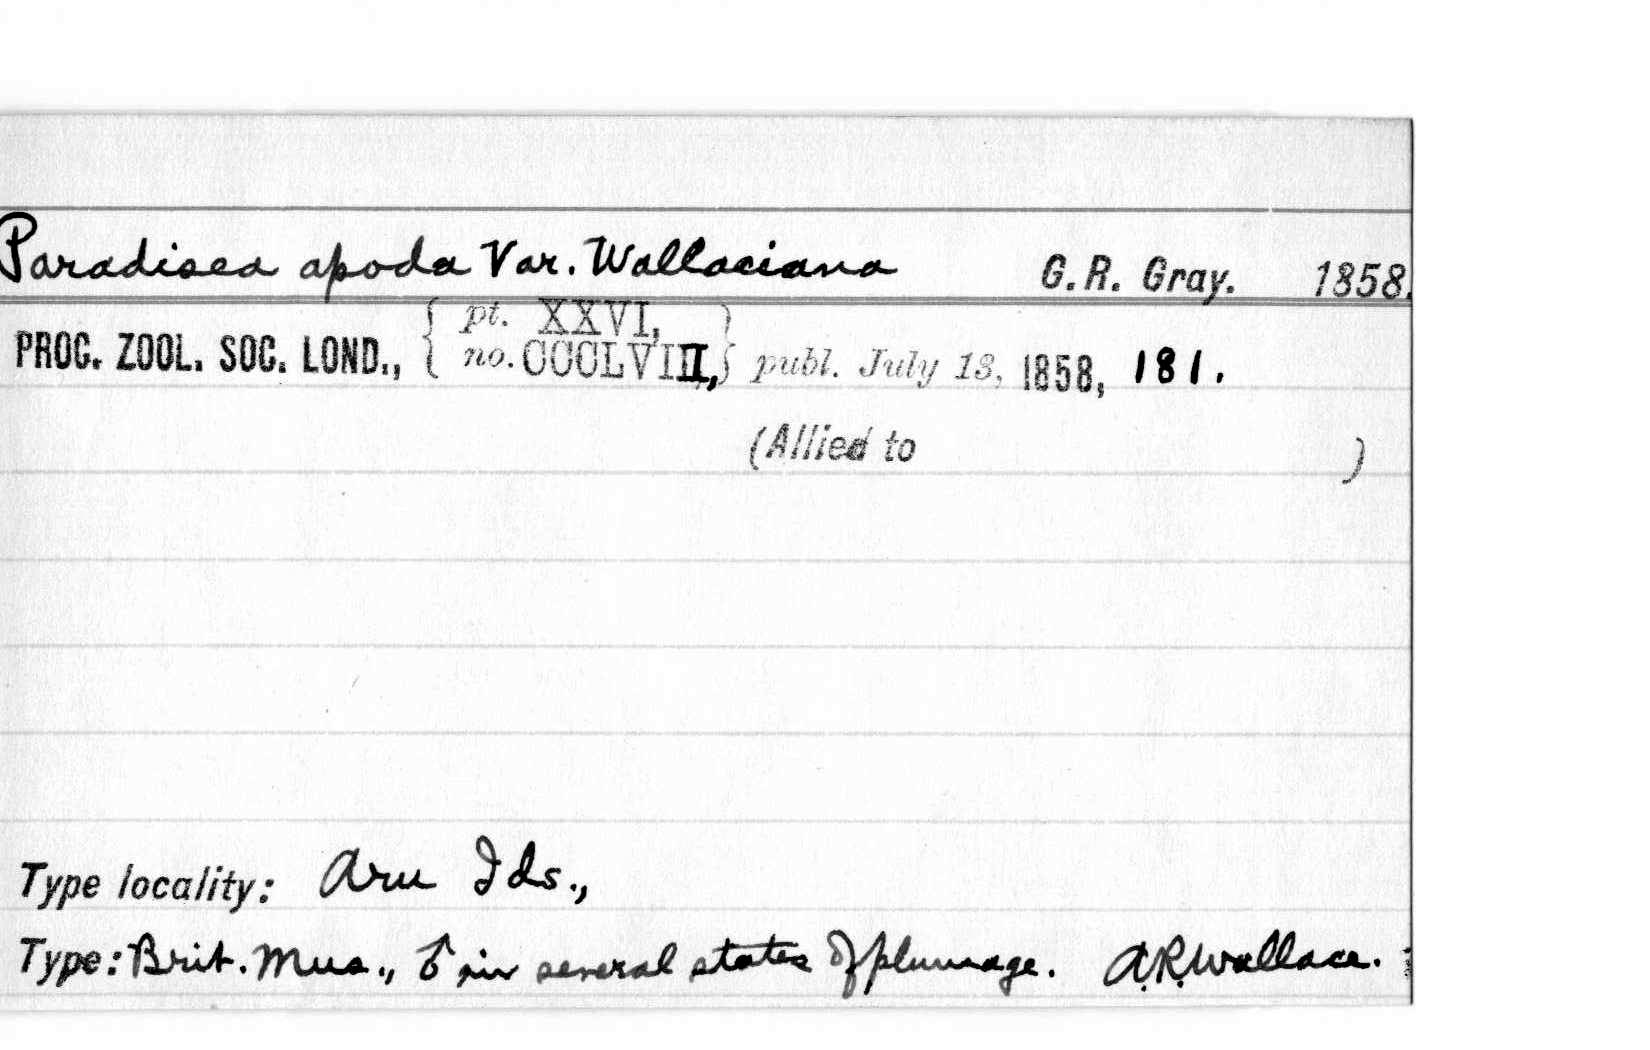 Paradisea apoda Var. Wallaciana G.R. Gray. 1858.
pt. XXVI,
PROC. ZOOL. SOC. LOND., { no. CCCLVIII, } publ. July 13, 1858, 181.
(Allied to )
Type locality: Aru Ids.,
Type: Brit. Mus., ♂ in several states of plumage. A.R. Wallace.